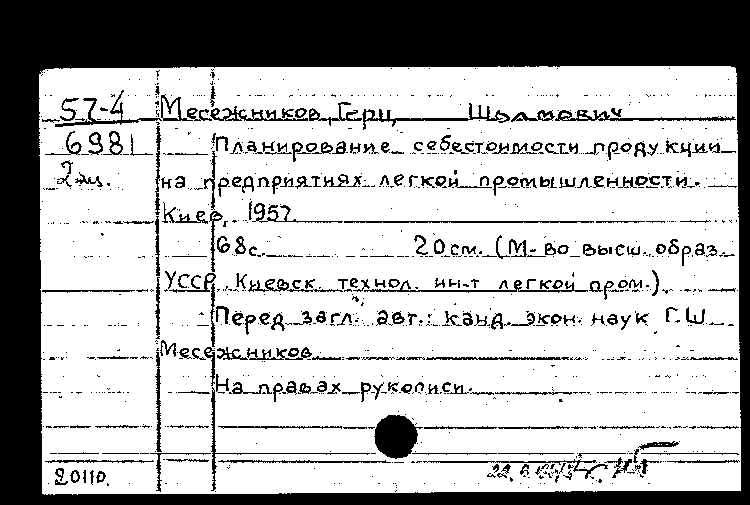 57-4 Месежников, Герц Шолмович
6981 Планирование себестоимости продукции
2 экз. на предприятиях легкой промышленности.
Киев, 1957.
68с. 20см. (М-во высш. образ.
УССР. Киевск. технол. ин-т легкой пром.)
Перед загл. авт.: канд. экон. наук Г.Ш.
Месежников.
На правах рукописи.
20110.